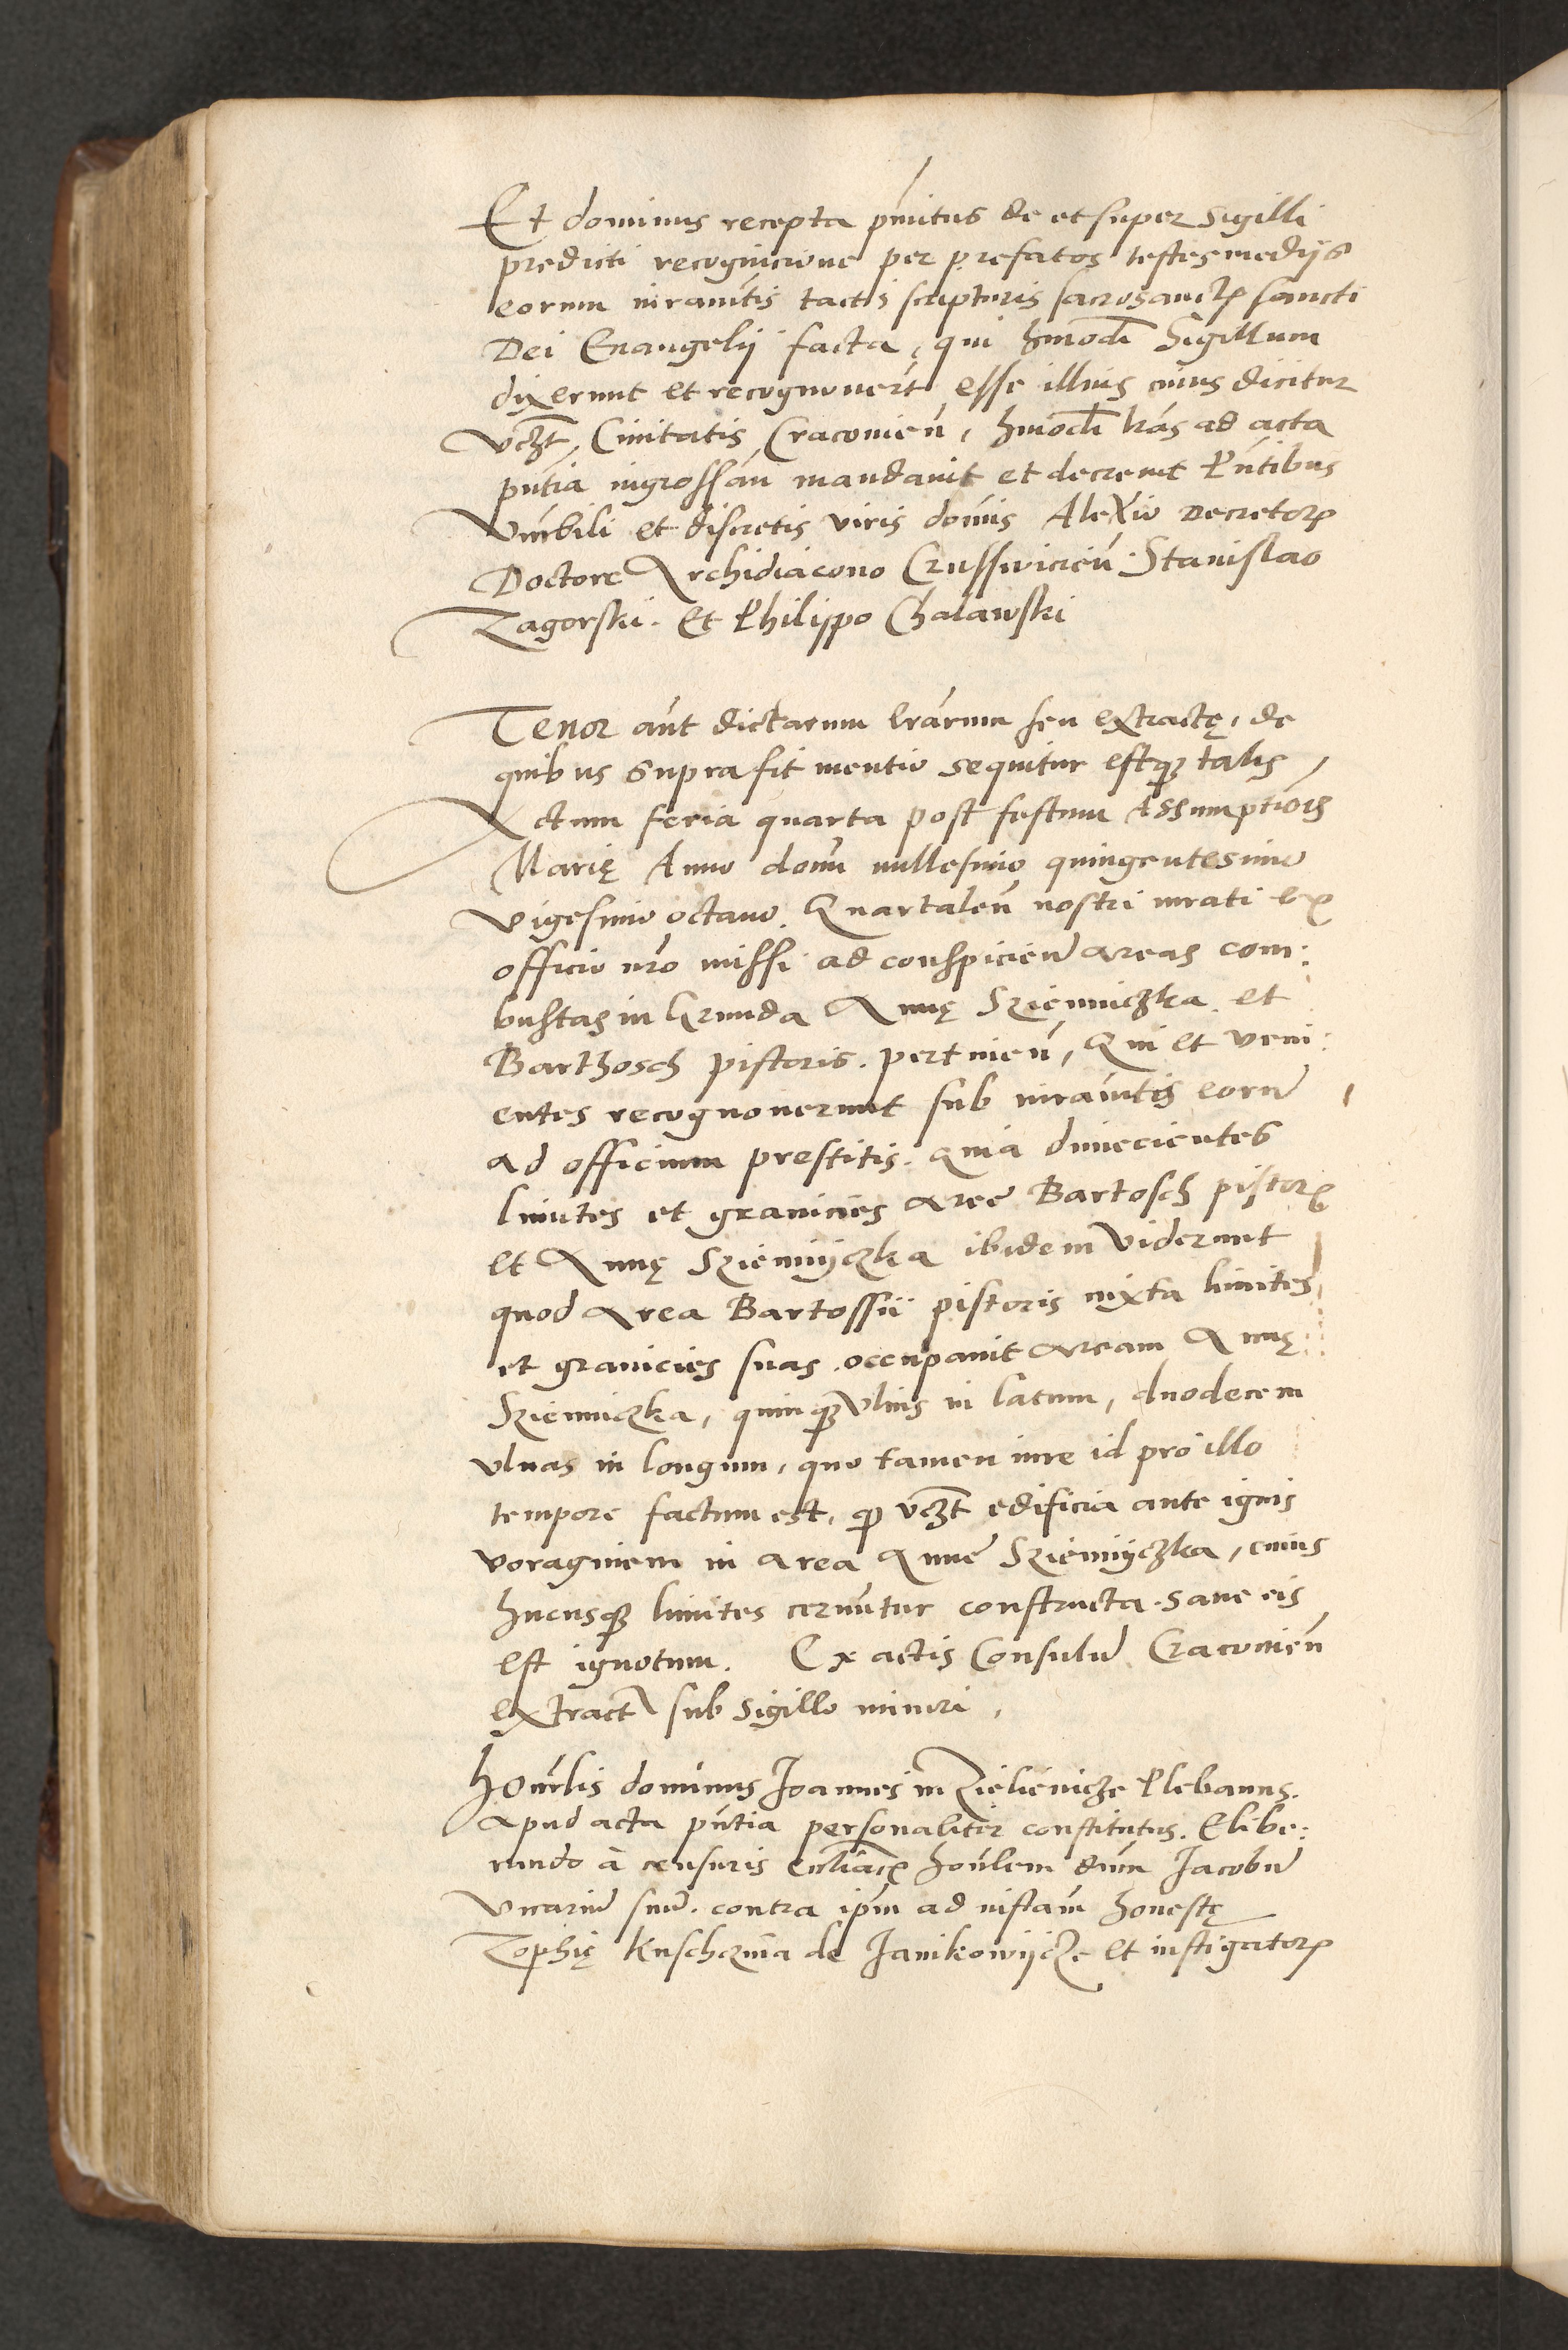 Et dominus recepta pmitus de et super Sigilli
predicti recognicione per prefatos testes medijs
eorum iuramtis tactis scripturis sacrosanctꝝ sancti
Dei Evangelij facta, qui hmodi Sigillum
dixerunt et recognoverũt esse illius cuius dicitur
vczt, Civitatis Cracovieñ, hmodi lr̃as ad acta
pñtia ingrossari mandavit et decrevit Pñtibus
Vñrbili et discretis viris dom̃is Alexio Decretorꝝ
Doctore Archidiacono Crusswicieñ. Stanislao
Zagorski. et Philippo Chalawski
Tenor aũt dictarum lr̃arum seu extractę, de
quibus supra fit mentio sequitur estqꝫ talis,
Actum feria quarta post festum Assumptiõis
Marię Anno domi millesimo quingentesimo
vigesimo octavo. Quartaleñ nostri iurati ex
officio nr̃o missi ad conspicienď areas com:
bustas in Grunda Annę Sziemiczka. et
Barthosch pistoris. pertineñ, Qui et veni:
entes recognoverunt sub iuramtis eorũ
ad officium prestitis. quia dimecientes
limites et granicies aree Bartosch pistoris
et Annę Sziemijczka ibidem viderunt
quod area Bartossii pistoris iuxta limites
et granicies suas occupavit aream Annę
Sziemiczka, quinqꝫ ulnis in latum, duodecem
ulnas in longum, quo tamen iure id pro illo
tempore factum est, qꝫ vczt edificia ante ignis
voraginem in area Anne Sziemijczka, cuius
hucusqꝫ limites cernũtur constructa. sane eis
est ignotum. Ex actis Consulũ Cracovieñ
extractũ sub sigillo minori,
Honrlis dominus Joannes in Zielienicze Plebanus.
apud acta pñtia personaliter constitutus. Elibe:
rando a censuris ecclîacꝝ hoñlem dnum Jacobũ
vicariũ suũ. contra ipm ad instam honestę
Zophię Kuschczina de Janikowijcze et instigatoris